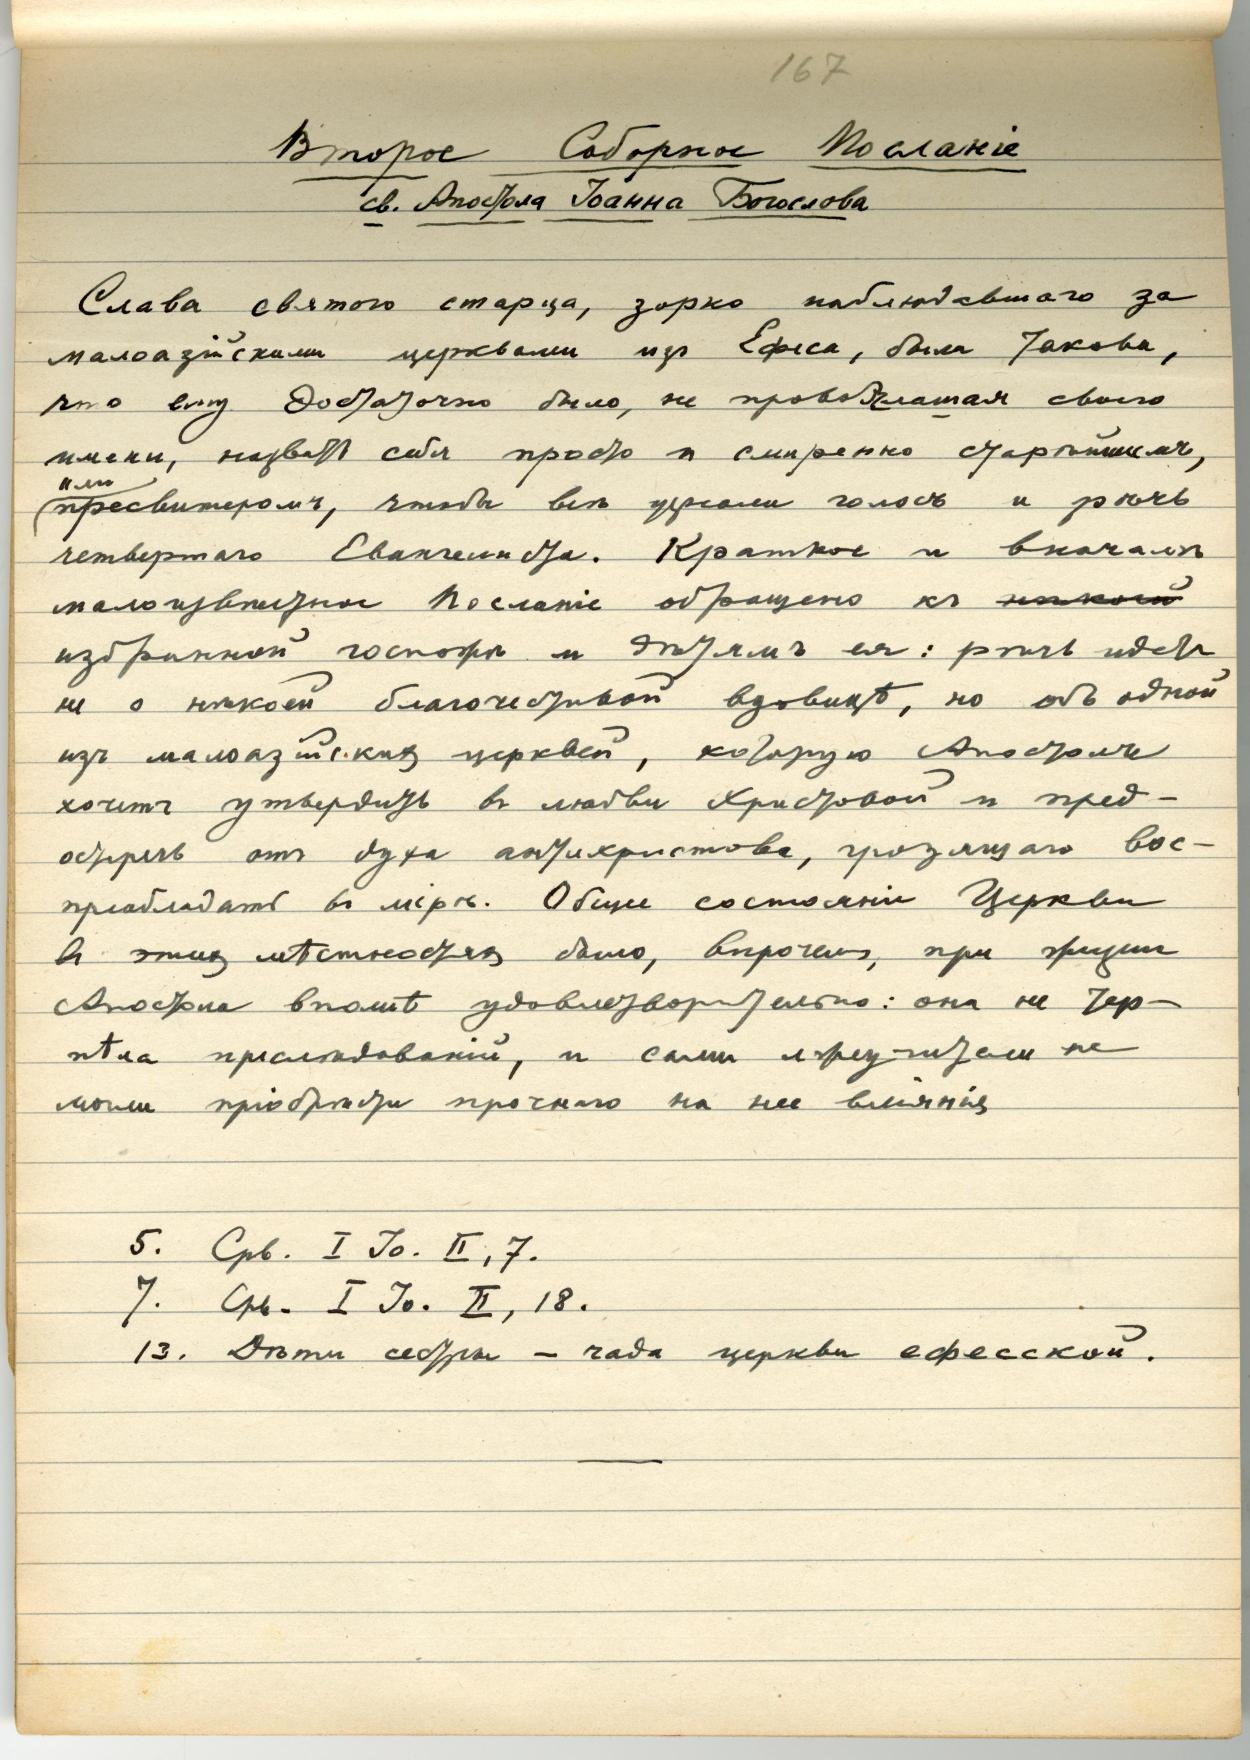 167
Второе Соборное Посланіе
св. Апостола Іоанна Богослова
Слава святого старца, зорко наблюдавшаго за
малоазійскими церквами изъ Ефеса, была такова,
что ему достаточно было, не провозглашая своего
имени, назвать себя просто и смиренно старѣйшимъ,
или
(пресвитеромъ, чтобы всѣ узнали голосъ и рѣчь
четвертаго Евангелиста. Краткое и вначалѣ
малоизвѣстное Посланіе обращено къ нѣкоей
избранной госпожѣ и дѣтямъ ея: рѣчь идетъ
не о нѣкоей благочестивой вдовицѣ, но объ одной
изъ малоазійскихъ церквей, которую Апостолъ
хочетъ утвердить въ любви Христовой и пред-
остречь отъ духа антихристова, грозящаго вос-
преобладать въ мірѣ. Общее состояніе Церкви
въ этихъ мѣстностяхъ было, впрочемъ, при жизни
Апостола вполнѣ удовлетворительно: она не тер-
пѣла преслѣдованій, и сами лжеучители не
могли пріобрѣсти прочнаго на нее вліянія
5. Срв. I Іо. II, 7.
7. Срв. I Іо. II, 18.
13. Дѣти сестры – чада церкви ефесской.